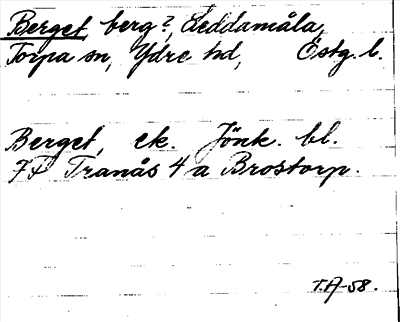 Berget, berg?, Leddamåla,
Torpa sn, Ydre hd, Östg. l.
Berget, ek. Jönk. bl.
77 Tranås 4 a Brostorp.
T.A-58.